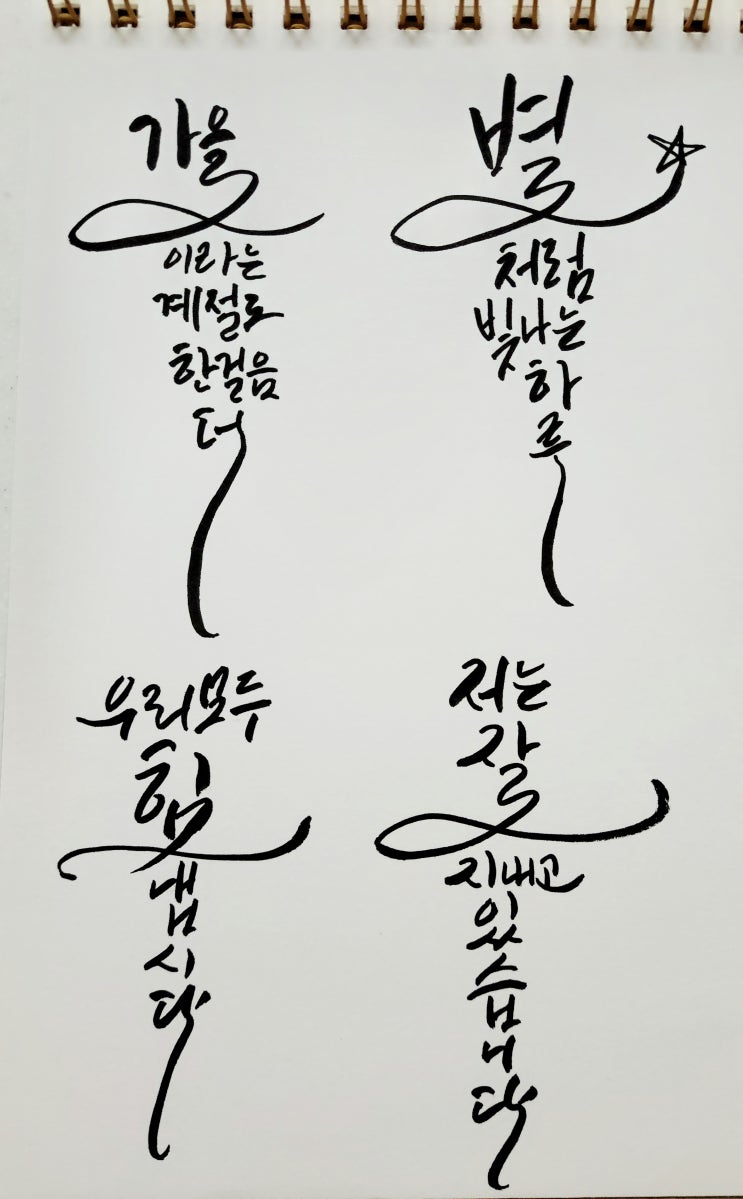 가을
이라는
계절로
한걸음
더
별
처럼
빛나는
하
루
우리모두
힘
냅
시
다
저는
잘
지내고
있
습
니
다